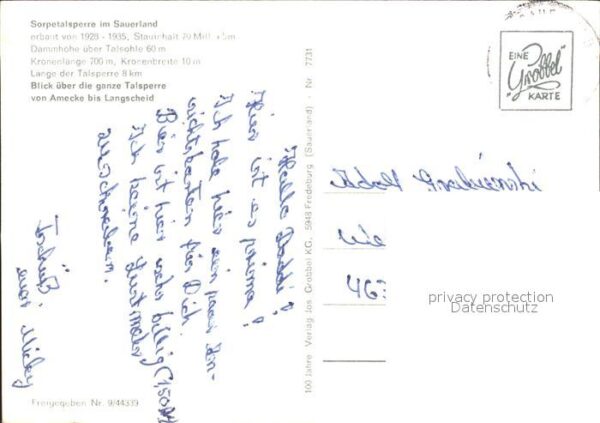 Sorpetalsperre im Sauerland
erbaut von 1928 - 1935, Stauinhalt 70 Mill. cbm
Dammhöhe über Talsohle 60 m
Kronenlänge 700 m, Kronenbreite 10 m
Länge der Talsperre 8 km
Blick über die ganze Talsperre
von Amecke bis Langscheid
Hallo
Hier ist es prima!
Ich habe hier ein paar An-
sichtskarten für Dich
Bier ist hier sehr billig (1,50
Ich keine Lust mehr
zu schreiben.
Tschüß,
euer Micky
Freigegeben Nr. 9/44339
100 Jahre Verlag Jos. Grobbel KG, 5948 Fredeburg (Sauerland) · Nr. 7731
EINE
"Grobbel"
KARTE
Adolf
463
privacy protection
Datenschutz